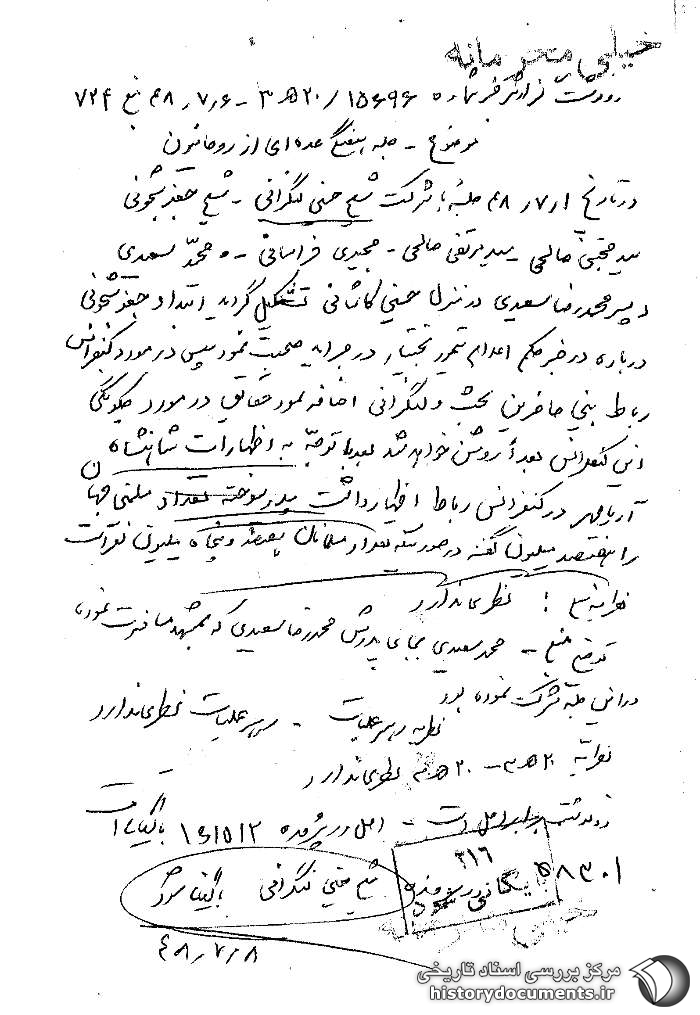 خیلی محرمانه
رونوشت گزارش خبر شماره ۱۵۶۹۶ / ۲۰ ﻫ ۳ - ۴۸٫۷٫۶ منبع ۷۲۴
موضوع - جلسه هفتگی عده‌ای از روحانیون
در تاریخ ۴۸٫۷٫۱ جلسه با شرکت شیخ حسینی لنکرانی - شیخ جعفر شجونی
سید مجتبی صالحی سید مرتضی صالحی - مجیدی خراسانی - و محمد سعیدی
پسر محمدرضا سعیدی در منزل حسینی کاشانی تشکیل گردید ابتدا جعفر شجونی
درباره درخبر حکم اعدام تیمور بختیار در جراید صحبت نمود سپس در مورد کنفرانس
رباط بین حاضرین بحث و لنکرانی اضافه نمود حقایق در مورد چگونگی
این کنفرانس بعداً روشن خواهد شد بعد با توجه به اظهارات شاهنشاه
آریامهر در کنفرانس رباط اظهار داشت پدرسوخته تعداد مسلمین جهان
را هفتصد میلیون گفته در صورتیکه تعداد مسلمانان پانصد و پنجاه میلیون نفر است
نظریه منبع : نظری ندارد
توضیح منبع - محمد سعیدی بجای پدرش محمدرضا سعیدی که بمشهد مسافرت نموده
در این جلسه شرکت نموده بود
نظریه رهبر عملیات - رهبر عملیات نظری ندارد
نظریه ۲۰ ﻫ ۳ - ۲۰ ﻫ ۳ نظری ندارد
رونوشت برابر اصل است - اصل در پرونده بایگانی است
۳۱۶
بایگانی
شیخ حسینی لنکرانی بایگانی شود
۴۸٫۷٫۸
خیلی محرمانه
مرکز بررسی اسناد تاریخی
historydocuments.ir